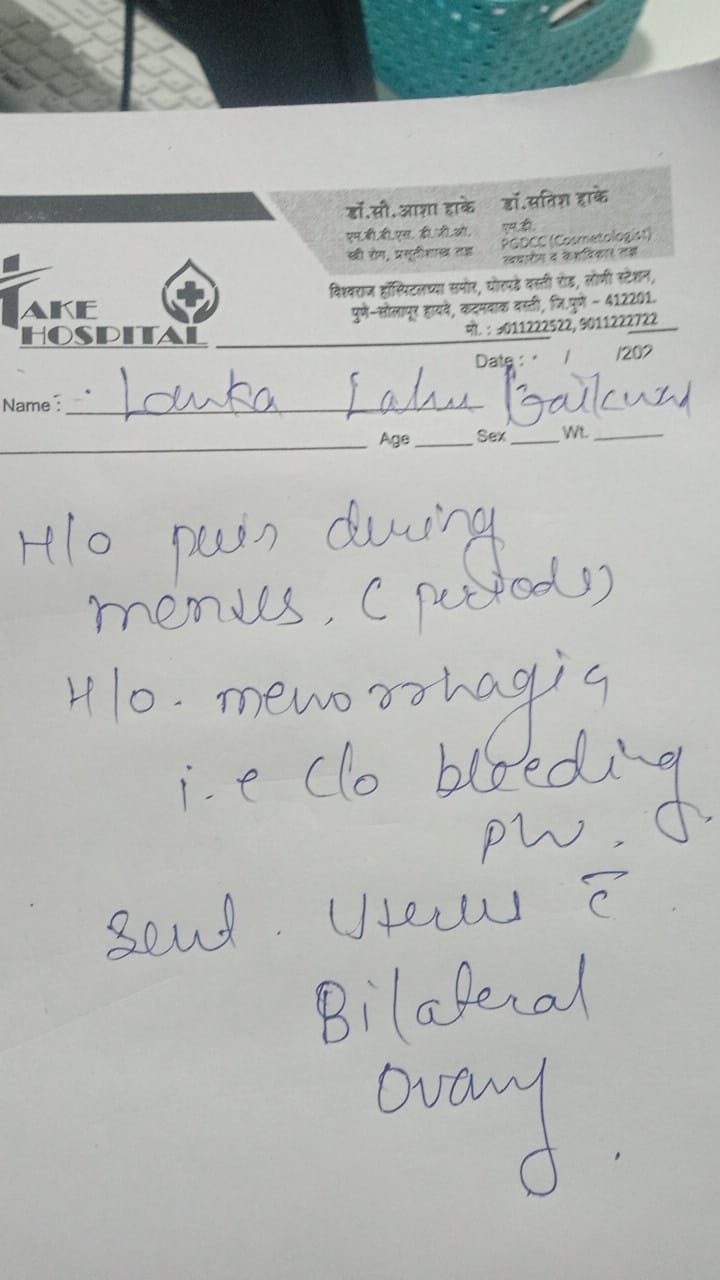 डॉ.सौ.आशा हाके
एम.बी.बी.एस. डी.जी.ओ.
स्त्री रोग, प्रसूतीशास्त्र तज्ञ
डॉ.सतिश हाके
एम.डी.
PGDCC (Cosmetologist)
त्वचारोग व केशविकार तज्ञ
AKE
HOSPITAL
विश्वराज हॉस्पिटलच्या समोर, घोरपडे वस्ती रोड, लोणी स्टेशन,
पुणे-सोलापूर हायवे, कदमवाक वस्ती, जि.पुणे - 412201.
मो. : 9011222522, 9011222722
Date: / /202
Name: Lahu Gaikwad
Age Sex Wt.
H/o during
menses. (periods)
H/o. menorrhagia
i.e c/o bleeding
PV.
Sent. Uterus c̄
Bilateral
Ovary.